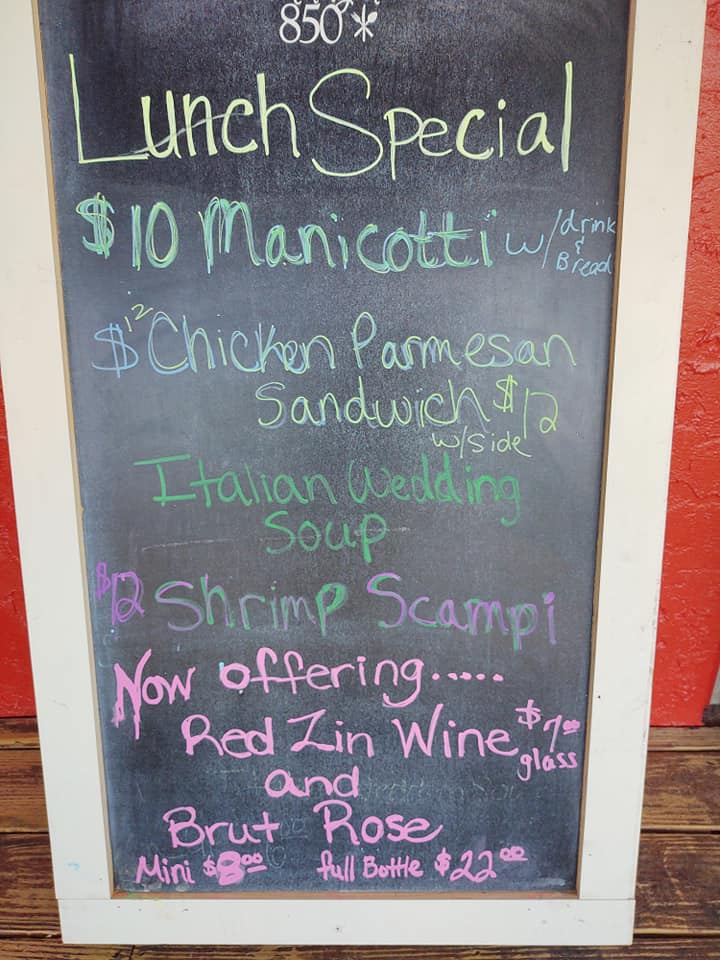 850
Lunch Special
$10 Manicotti w/drink & Bread
$12 Chicken Parmesan
Sandwich $12
w/side
Italian Wedding
Soup
$12 Shrimp Scampi
Now offering.....
Red Zin Wine $7.00 glass
and
Brut Rose
Mini $8.00 full Bottle $22.00